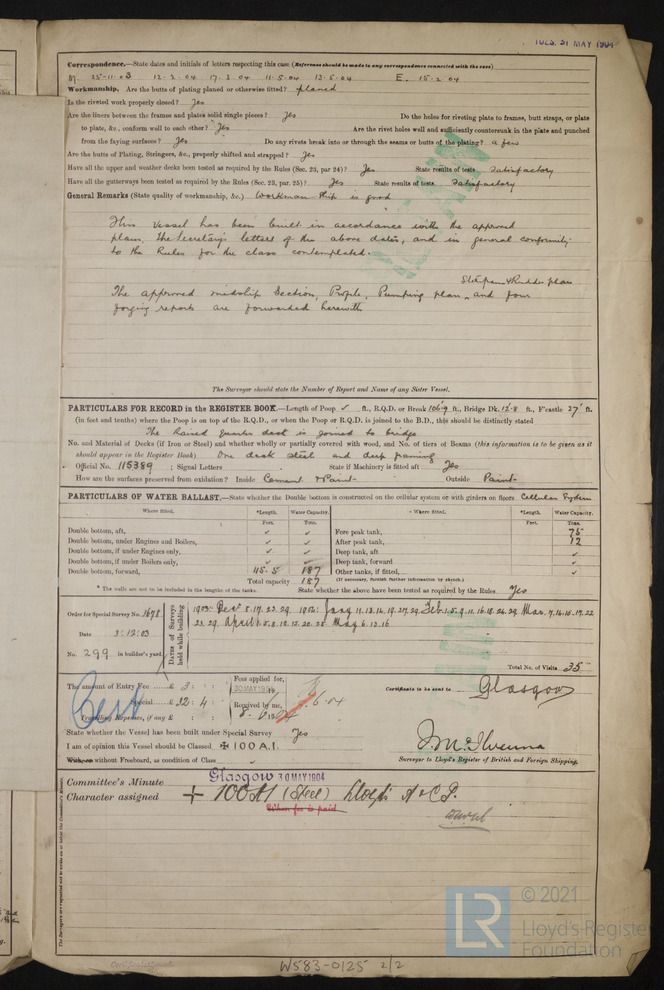 TUES. 31 MAY 1904
Correspondence.—State dates and initials of letters respecting this case (Reference should be made to any correspondence connected with the case)
M. 25·11·03 12·2·04 17·3·04 11·5·04 13·5·04 E. 15·2·04
Workmanship. Are the butts of plating planed or otherwise fitted? planed
Is the riveted work properly closed? Yes
Are the liners between the frames and plates solid single pieces? Yes Do the holes for riveting plate to frames, butt straps, or plate
to plate, &c., conform well to each other? Yes Are the rivet holes well and sufficiently countersunk in the plate and punched
from the faying surfaces? Yes Do any rivets break into or through the seams or butts of the plating? a few
Are the butts of Plating, Stringers, &c., properly shifted and strapped? Yes
Have all the upper and weather decks been tested as required by the Rules (Sec. 23, par 24)? Yes State results of tests satisfactory
Have all the gutterways been tested as required by the Rules (Sec. 23, par. 25)? Yes State results of tests satisfactory
General Remarks (State quality of workmanship, &c.) Workmanship is good
This vessel has been built in accordance with the approved
plans, the Secretary's letters of the above dates, and in general conformity
to the Rules for the class contemplated.
Sternframe & Rudder plans
The approved midship Section, Profile, Pumping plan, and four
forging reports are forwarded herewith
The Surveyor should state the Number of Report and Name of any Sister Vessel.
PARTICULARS FOR RECORD in the REGISTER BOOK.—Length of Poop ✓ ft., R.Q.D. or Break 106·9 ft., Bridge Dk. 12·8 ft., F'castle 27' ft.
(in feet and tenths) where the Poop is on top of the R.Q.D., or when the Poop or R.Q.D. is joined to the B.D., this should be distinctly stated
The Raised quarter deck is joined to bridge
No. and Material of Decks (if Iron or Steel) and whether wholly or partially covered with wood, and No. of tiers of Beams (this information is to be given as it
should appear in the Register Book). One deck steel and deep framing
Official No. 115389 ; Signal Letters State if Machinery is fitted aft Yes
How are the surfaces preserved from oxidation? Inside Cement & Paint Outside Paint
PARTICULARS OF WATER BALLAST.—State whether the Double bottom is constructed on the cellular system or with girders on floors Cellular System
Where fitted. *Length. Water Capacity. Where fitted. *Length. Water Capacity.
Feet. Tons. Feet. Tons.
Double bottom, aft, ✓ ✓ Fore peak tank, 75
Double bottom, under Engines and Boilers, ✓ ✓ After peak tank, 12
Double bottom, if under Engines only, ✓ ✓ Deep tank, aft ✓
Double bottom, if under Boilers only, ✓ ✓ Deep tank, forward ✓
Double bottom, forward, 115·5 187 Other tanks, if fitted, ✓
Total capacity 187 (If necessary, furnish further information by sketch.)
* The wells are not to be included in the lengths of the tanks. State whether the above have been tested as required by the Rules Yes
Order for Special Survey No. 1678
Date 3·12·03
No. 299 in builder's yard.
Dates of Surveys held while building
1903: Dec 8.17.23.29. 1904: Jany 11.13.14.19.27.29. Feb. 1.5.9.11.16.18.24.29. Mar. 7.14.15.17.22
23.29. April 1.5.8.12.15.20.25. May 6.13.16
Total No. of Visits 35
The amount of Entry Fee £ 3 : :
Special £ 32 : 4 :
Travelling Expenses, if any £ : :
Fees applied for,
30 MAY 1904
Received by me,
Certificate to be sent to Glasgow
State whether the Vessel has been built under Special Survey Yes
I am of opinion this Vessel should be Classed ✠ 100 A.1.
With, or without Freeboard, as condition of Class
Surveyor to Lloyd's Register of British and Foreign Shipping.
Committee's Minute Glasgow 30 MAY 1904
Character assigned + 100 A1 (Steel) Lloyd's A & C P.
When fee is paid
The Surveyors are requested not to write on or below the Committee's Minute.
W583-0125 2/2
© 2021
LR
Lloyd's Register
Foundation